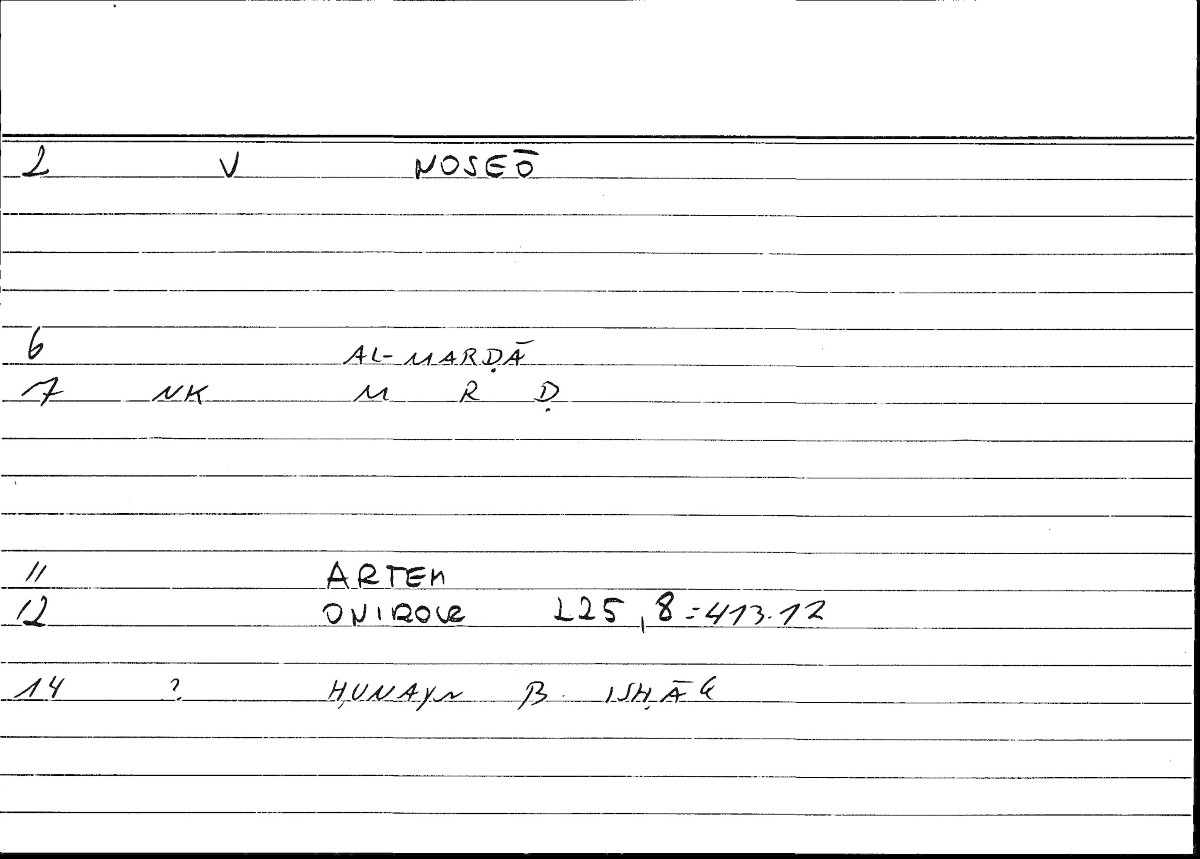 2 V NOSEŌ
6 AL-MARḌĀ
7 NK M R Ḍ
11 ARTEM
12 ONIROCR 225,8=413.12
14 ? ḤUNAYN B. ISḤĀQ